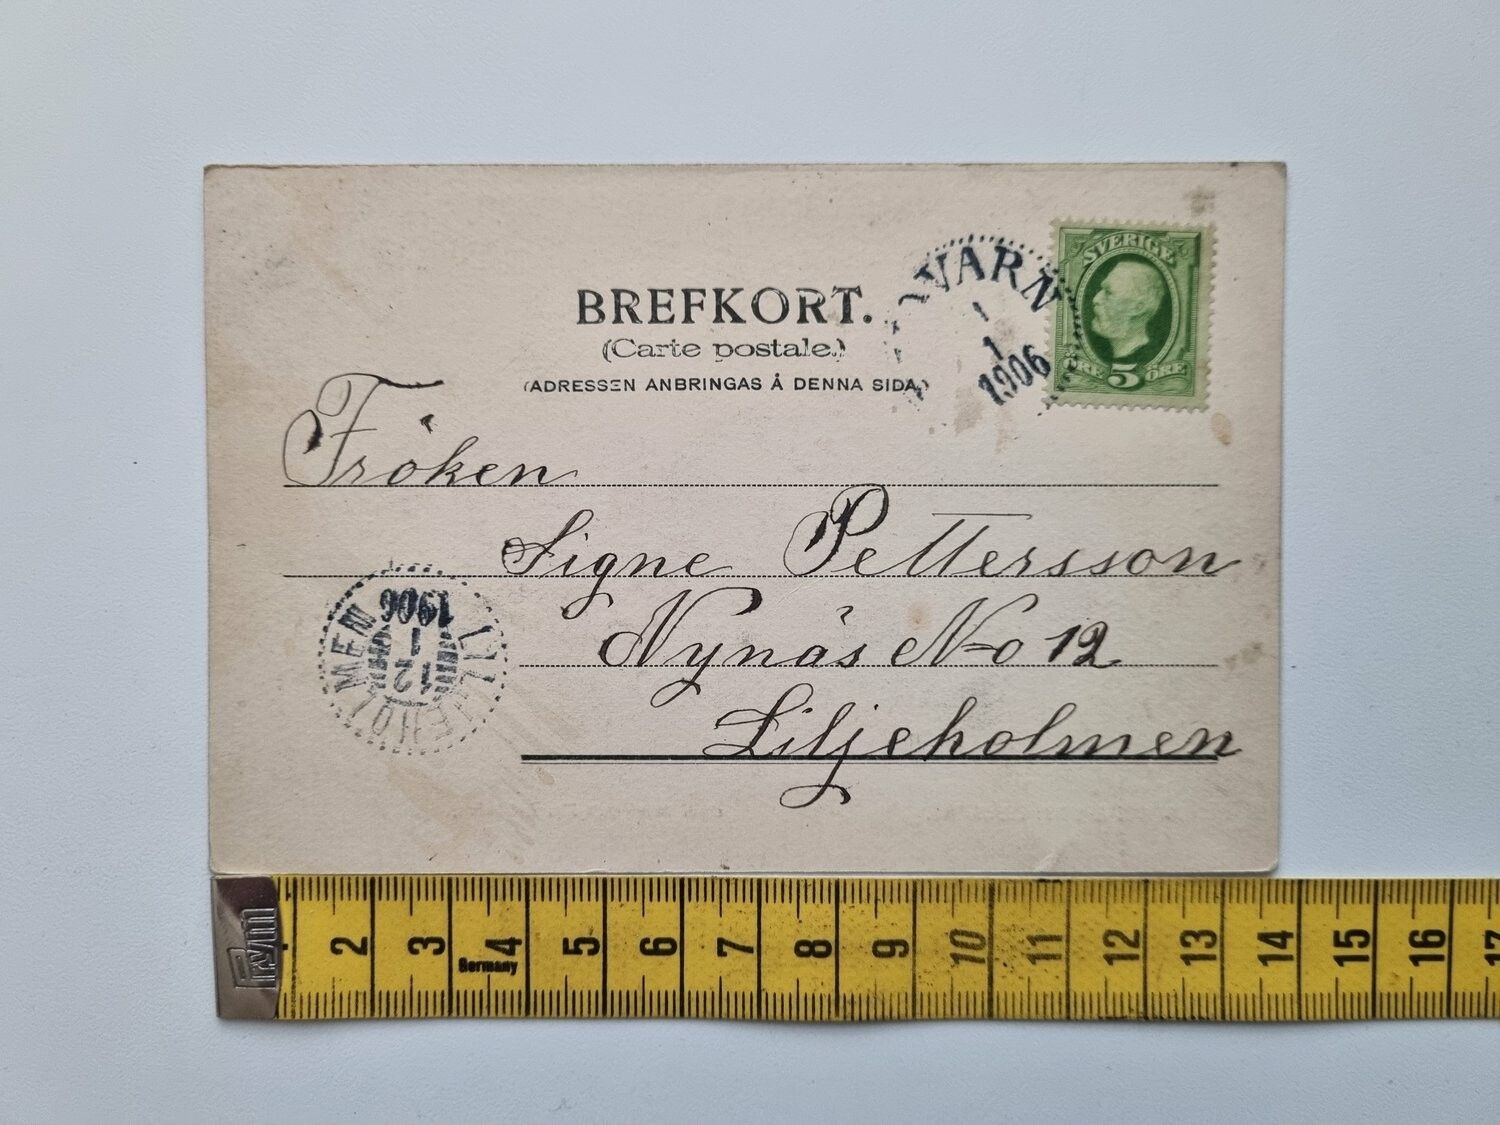 BREFKORT.
(Carte postale.)
(ADRESSEN ANBRINGAS Å DENNA SIDA.)
1
1
1906
SVERIGE
5 ÖRE
Fröken
Signe Pettersson
Nynäs No 12
Liljeholmen
LILJEHOLMEN
12
1
1906
Prym
Germany
2 3 4 5 6 7 8 9 10 11 12 13 14 15 16 17